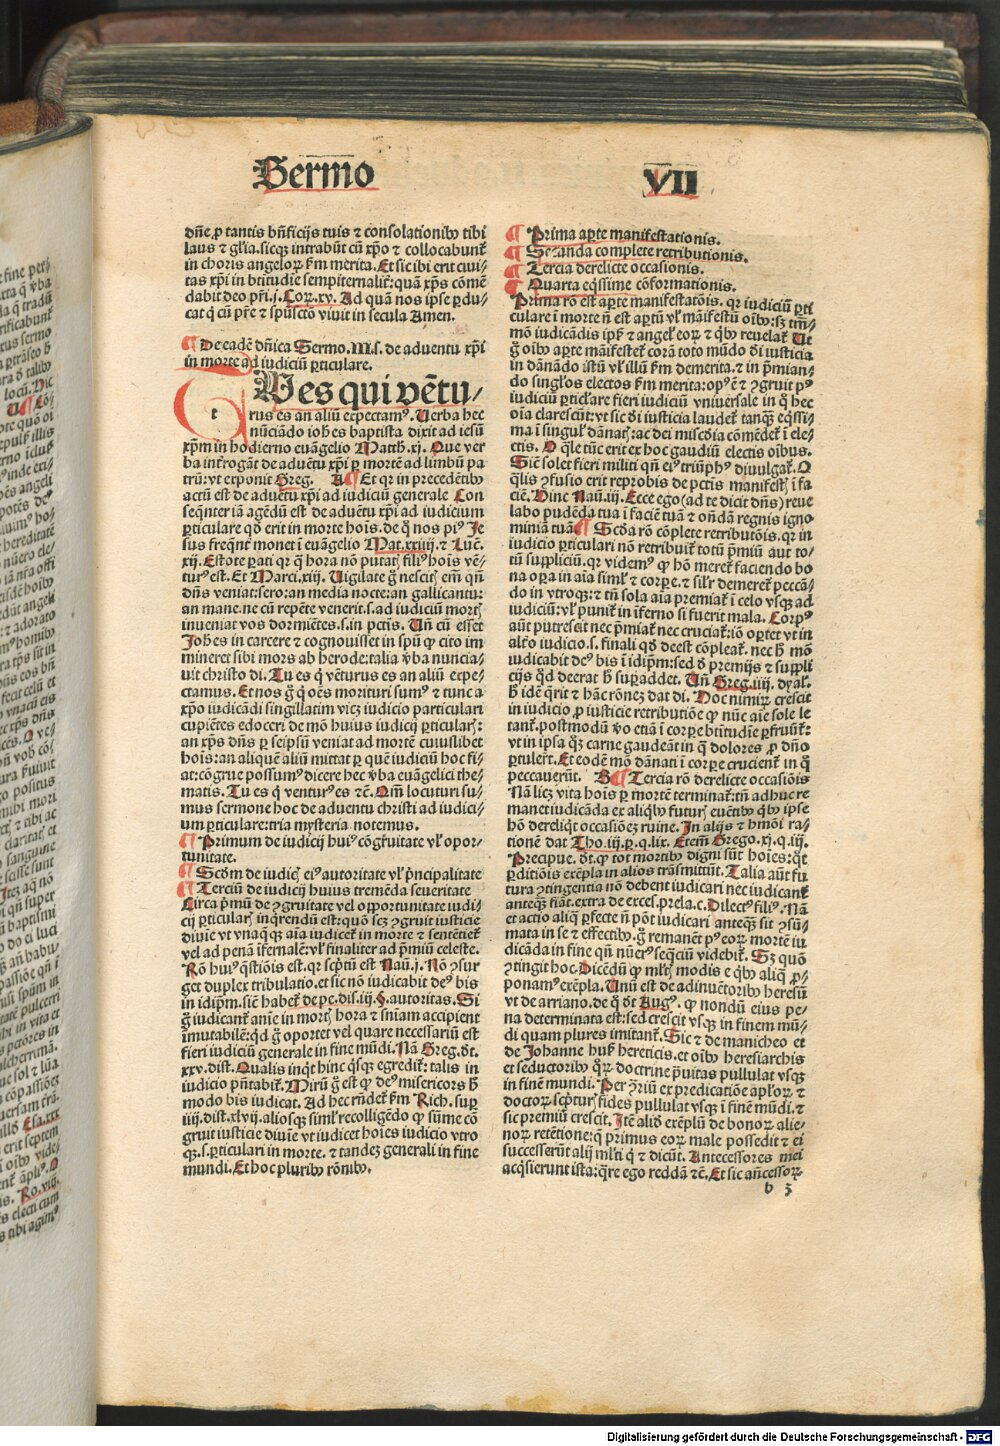 Sermo VII
dñe ꝓ tantis bñficijs tuis ⁊ consolationibꝰ tibi
laus ⁊ gl̃ia. sicqꝫ intrabũt cũ xp̃o ⁊ collocabunt̃
in choris angeloꝝ ẜm merita. Et sic ibi erit ciui⸗
tas xp̃i in btitudie sempiternalit̃: quã xp̃s cõmẽ
dabit deo pr̃i. j. Corꝝ. xv. Ad quã nos ipse ꝑdu⸗
cat q̃ cũ pr̃e ⁊ spũscto viuit in secula Amen.
¶ De eadẽ dñica Sermo. M. s. de aduentu xp̃i
in morte ad iudiciũ ꝑticulare.
TU es qui vẽtu⸗
rus es an aliũ expectamꝰ. Uerba hec
nũciãdo ioh̃es baptista dixit ad iesũ
xp̃m in hodierno euãgelio Matth. xj. Que ver
ba int̃rogãt de aduẽtu xp̃i ꝑ mortẽ ad limbũ pa
trũ: vt exponit Greg. A ¶ Et qr in precedẽtibꝰ
actũ est de aduẽtu xp̃i ad iudiciũ generale Con
seqñter iã agẽdũ est de aduẽtu xp̃i ad iudicium
ꝑticulare qd̃ erit in morte hoĩs. de q̃ nos piꝰ Je
sus freqñt monet ĩ euãgelio Mat. xxiiij. ⁊ Luc̃.
xij. Estote ꝑati qr q̃ hora nõ putatꝭ filiꝰ hoĩs vẽ⸗
turꝰ est. Et Marci. xiij. Uigilate g̃ nescitꝭ em̃ qñ
dñs veniat: sero: an media nocte: an gallicantu:
an mane. ne cũ repẽte venerit. s. ad iudiciũ mortꝭ
inueniat vos dormiẽtes. s. in pctĩs. Uñ cũ esset
Joh̃es in carcere ⁊ cognouisset in spũ ꝙ cito im
mineret sibi mors ab herode: talia v̾ba nuncia⸗
uit christo dĩ. Tu es q̃ vẽturus es an aliũ expe⸗
ctamus. Et nos g̃ q̃ oẽs morituri sumꝰ ⁊ tunc a
xp̃o iudicãdi singillatim vicꝫ iudicio particulari
cupiẽtes edoceri de mõ huius iudicij ꝑticularꝭ:
an xp̃s dñs ꝑ seipsũ veniat ad mortẽ cuiuslibet
hoĩs: an aliquẽ aliũ mittat ꝑ quẽ iudiciũ hoc fi⸗
at: cõgrue possumꝰ dicere hec v̾ba euãgelici the⸗
matis. Tu es q̃ venturꝰ es ⁊c̃. Qm̃ locuturi su⸗
mus sermone hoc de aduentu christi ad iudici⸗
um ꝑticulare: tria mysteria notemus.
¶ Primum de iudicij huiꝰ cõgr̃uitate vl̃ opor⸗
tunitate.
¶ Scd̃m de iudicꝭ eiꝰ autoritate vl̃ p̃ncipalitate
¶ Terciũ de iudicij huius tremẽda seueritate
Circa p̃mũ de ꝯgruitate vel opportunitate iudi⸗
cij ꝑticularꝭ inq̃rendũ est: quõ scꝫ ꝯgruit iusticie
diuie vt vnaq̃qꝫ aĩa iudicet̃ in morte ⁊ sentẽtiet̃
vel ad penã ĩfernalẽ: vl̃ finaliter ad p̃miũ celeste.
Rõ huiꝰ q̃stiõis est. qr scp̃tũ est Naũ. j. Nõ ꝯsur
get duplex tribulatio. et sic nõ iudicabit deꝰ bis
in idip̃m. sic̃ habet̃ de pe. dis. iij. §. autoritas. Si
g̃ iudicant̃ anie in mortꝭ hora ⁊ sniam accipient
ĩmutabilẽ: qd̃ g̃ oportet vel quare necessariũ est
fieri iudiciũ generale in fine mũdi. Nã Greg. dt̃.
xxv. dist. Qualis inq̃t hinc q̃sqꝫ egredit̃: talis in
iudicio p̃ntabit̃. Mirũ g̃ est ꝙ deꝰ misericors h̃
modo bis iudicat. Ad hec rñdet̃ ẜm Rich. sup̃
iiij. dist. xlvij. aliosqꝫ siml̃ recolligẽdo ꝙ sũme cõ
gruit iusticie diuĩe vt iudicet hoĩes iudicio vtro
qꝫ. s. ꝑticulari in morte. ⁊ tandeꝫ generali in fine
mundi. Et hoc pluribꝰ rõnibꝰ.
¶ Prima aꝑte manifestationis.
¶ Secunda complete retributionis.
¶ Tercia derelicte occasionis.
¶ Quarta eq̃ssime cõformationis.
Prima rõ est aꝑte manifestatõis. qr iudiciũ ꝑti
culare ĩ morte ñ est aꝑtũ vl̃ mãifestũ oĩbꝰ: sꝫ tm̃⸗
mõ iudicãdis ip̃ẜ ⁊ angel̃ eoꝝ ⁊ q̃bꝰ reuelat̃. Ut
g̃ oĩbꝰ aꝑte mãifestet̃ corã toto mũdo dĩ iusticia
in dãnãdo istũ vl̃ illũ ẜm demerita. ⁊ in p̃mian⸗
do singl̃os electos ẜm merita: opꝰ ẽ ⁊ ꝯgruit pꝰ
iudiciũ ꝑticl̃are fieri iudiciũ vniuersale in q̃ hec
oĩa clarescũt: vt sic dĩ iusticia laudet̃ tanqꝫ eq̃ssi⸗
ma ĩ singul̃ dãnatꝭ: ac dei misc̃dia cõmẽdet̃ ĩ ele⸗
ctis. O q̃le tũc erit ex hoc gaudiũ electis oĩbus.
Sic̃ solet fieri militi qñ eiꝰ triũph̾ diuulgat̃. O
q̃lis ꝯfusio erit reprobis de pctĩs manifestꝭ ĩ fa
ciẽ. Hinc Naũ. iij. Ecce ego (ad te dicit dñs) reue
labo pudẽda tua ĩ faciẽ tuã ⁊ oñdã regnis igno
miniã tuã. ¶ Scd̃a rõ cõplete retributõis. qr in
iudicio ꝑticulari nõ retribuit̃ totũ p̃miũ aut to⸗
tũ suppliciũ. qr videmꝰ ꝙ hõ meret̃ faciendo bo
na oꝑa in aĩa siml̃ ⁊ corꝑe. ⁊ sil̃r demeret̃ peccã⸗
do in vtroqꝫ: ⁊ tñ sola aĩa premiat̃ ĩ celo vsqꝫ ad
iudiciũ: vl̃ punit̃ in ĩferno si fuerit mala. Corpꝰ
aũt putrescit nec p̃miat̃ nec cruciat̃: iõ oꝑtet vt in
alt̃o iudicio. s. finali qd̃ deest cõpleat̃. nec h̃ mõ
iudicabit deꝰ bis ĩ idip̃m: sed h̃ premijs ⁊ suppli
cijs qd̃ deerat h̃ suꝑaddet. Uñ Greg. iiij. dyal̃.
h̃ idẽ q̃rit ⁊ hãc rõneꝫ dat dĩ. Hoc nimiꝝ crescit
in iudicio ꝓ iusticie retributiõe ꝙ nũc aĩe sole le
tant̃. postmodũ vo etiã ĩ corꝑe btitudĩe ꝑfruũt̃:
vt in ipsa q̃ꝫ carne gaudeãt in q̃ dolores ꝓ dño
ꝑtulert̃. Et eodẽ mõ dãnati ĩ corꝑe crucient̃ in q̃
peccauerũt. B ¶ Tercia rõ derelicte occasiõis
Nã licꝫ vita hoĩs ꝑ mortẽ terminat̃: tñ adhuc re
manet iudicãda ex aliq̃bꝰ futurꝭ euẽtibꝰ q̃bꝰ ipse
hõ dereliq̃t occasiõeꝫ ruine. In alijs ⁊ h̃mõi ra⸗
tionẽ dat Tho. iij. p. q. lix. Etem̃ Grego. xj. q. iij.
Precipue. dt̃. ꝙ tot mortibꝰ digni sũt hoĩes: q̃t
ꝑditiõis exẽpla in alios trãsmittũt. Talia aũt fu
tura ꝯtingentia nõ debent iudicari nec iudicant̃
anteqꝫ fiãt. extra de exces. prela. c. Dilectꝰ filiꝰ. Nã
et actio aliq̃ ꝑfecte ñ põt iudicari anteqꝫ sit ꝯsũ⸗
mata in se ⁊ effectibꝰ. g̃ remanẽt pꝰ eoꝝ mortẽ iu
dicãda in fine qñ nuẽrꝰ seqcũũ videbit̃. Sꝫ quõ
ꝯtingit hoc. Dicẽdũ ꝙ ml̃tꝭ modis e q̃bꝰ aliq̃ ꝓ⸗
ponamꝰ exẽpla. Unũ est de adinuẽtoribꝰ heresũ
vt de arriano. de q̃ dt̃ Augꝰ. ꝙ nondũ eius pe⸗
na determinata est: sed crescit vsqꝫ in finem mũ⸗
di quam plures imitant̃. Sic ⁊ de manicheo et
de Johanne husꝭ hereticis. et oĩbꝰ heresiarchis
et seductoribꝰ q̃ꝝ doctrine p̃uitas pullulat vsqꝫ
in finẽ mundi. Per ꝯ̃riũ ex predicatiõe aplõꝝ ⁊
doctoꝝ scp̃turꝭ fides pullulat vsqꝫ ĩ finẽ mũdi. ⁊
sic premiũ crescit. Itẽ aliõ exẽplũ de bonoꝝ alie⸗
noꝝ retẽtione: q̃ primus eoꝝ male possedit ⁊ ei
successerũt alij ml̃ti q̃ ⁊ dicũt. Antecessores mei
acq̃sierunt ista: q̃re ego reddã ⁊c̃. Et sic añcessoꝝ
b 3
Digitalisierung gefördert durch die Deutsche Forschungsgemeinschaft - DFG